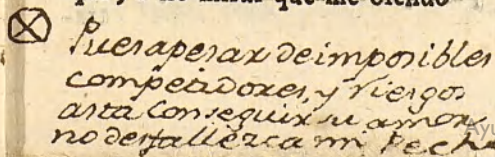 que me ofendo
Pues apesar de imposibles
competidores, y riesgos
asta conseguir su amor
no desfallezca mi Pecho
Ayu